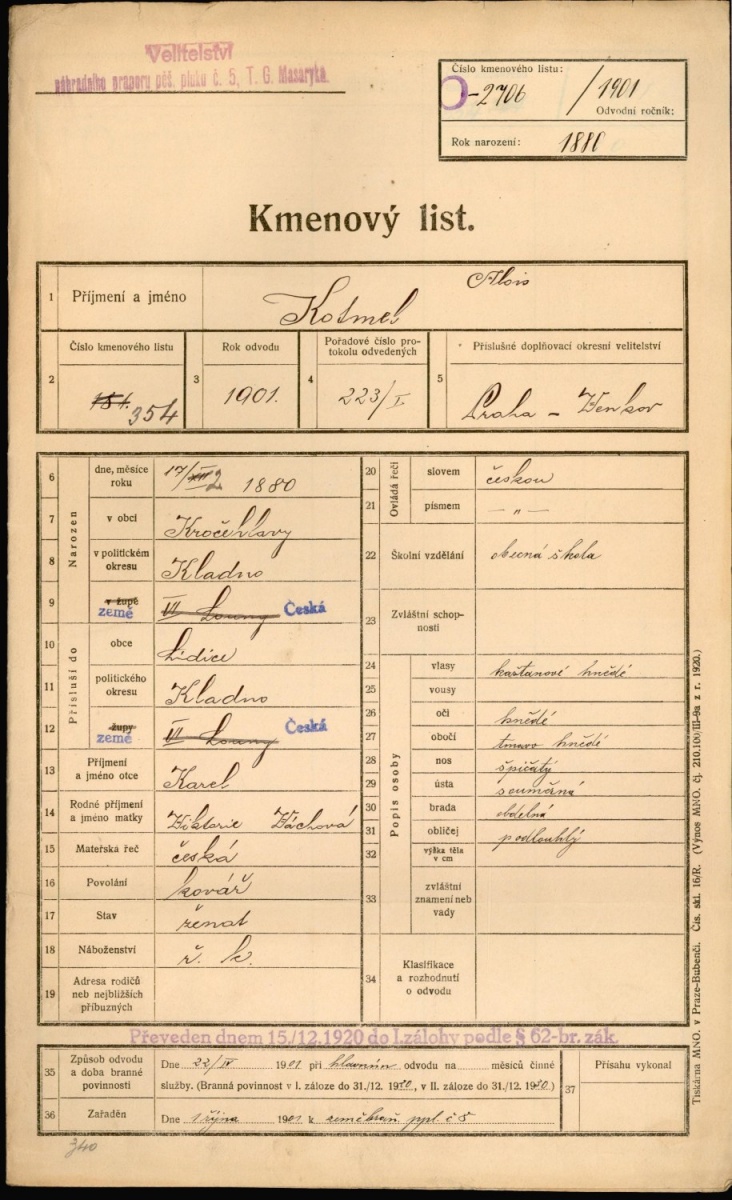 Velitelství
náhradního praporu pěš. pluku č. 5, T. G. Masaryka.
Číslo kmenového listu:
-2706 / 1901
Odvodní ročník:
Rok narození: 1880
Kmenový list.
1 Příjmení a jméno Kotmel Alois
Číslo kmenového listu Rok odvodu Pořadové číslo protokolu odvedených Příslušné doplňovací okresní velitelství
2 354 3 1901. 4 223/I. 5 Praha - Venkov
Narozen
6 dne, měsíce roku 17/2 1880
7 v obci Kročehlavy
8 v politickém okresu Kladno
9 v župě země VI Louny Česká
Přísluší do
10 obce Lidice
11 politického okresu Kladno
12 župy země VI Louny Česká
13 Příjmení a jméno otce Karel
14 Rodné příjmení a jméno matky Viktorie Váchová
15 Mateřská řeč česká
16 Povolání kovář
17 Stav ženat
18 Náboženství ř. k.
19 Adresa rodičů neb nejbližších příbuzných
Ovládá řeči
20 slovem českou
21 písmem — „ —
22 Školní vzdělání obecná škola
23 Zvláštní schopnosti
Popis osoby
24 vlasy kaštanové hnědé
25 vousy
26 oči hnědé
27 obočí tmavo hnědé
28 nos špičatý
29 ústa souměrná
30 brada obdelná
31 obličej podlouhlý
32 výška těla v cm
33 zvláštní znamení neb vady
34 Klasifikace a rozhodnutí o odvodu
Převeden dnem 15./12.1920 do I.zálohy podle § 62-br. zák.
35 Způsob odvodu a doba branné povinnosti Dne 22/IV 1901 při hlavním odvodu na měsíců činné
služby. (Branná povinnost v I. záloze do 31./12. 1920, v II. záloze do 31./12. 1930.)
36 Zařaděn Dne 1 října 1901 k zeměbraň. ppl. č 5
37 Přísahu vykonal
340
Tiskárna MNO. v Praze-Bubenči. Čís. skl. 16/R. (Výnos MNO. čj. 210.100/III-9a z r. 1920.)